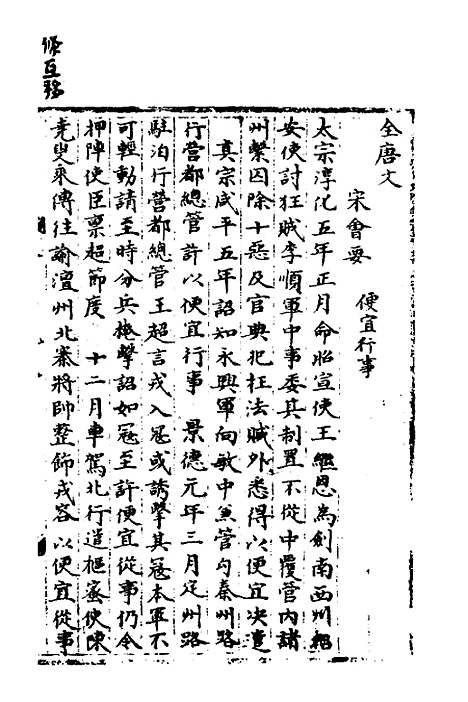 條互移
全唐文
宋會要
便宜行事
太宗淳化五年正月命昭宣使王繼恩為劍南西川招
安使討狂賊李順軍中事委其制置不從中覆管內諸
州繫囚除十惡及官典犯枉法贓外悉得以便宜決遣
真宗咸平五年詔知永興軍向敏中兼管勾秦州路
行營都總管許以便宜行事 景德元年三月定州路
駐泊行營都總管王超言戎入寇或誘擊其寇本軍不
可輕動請至時分兵掩擊詔如寇至許便宜從事仍令
押陣使臣稟超節度 十二月車駕北行道樞密使陳
堯叟乘傳往諭澶州北寨將帥整飾戎容以便宜從事